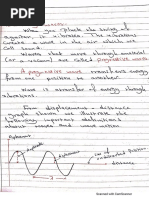 When you pluck the string of
a guitar, it vibrates. The vibrations
create a wave in the air which we
call sound.
Waves that move through material
(or a vacuum) are called progressive waves
A progressive wave transfers energy
from one position to another.
Wave is transfer of energy through
vibrations.
From displacement-distance
graph shown we illustrate the
following important definitions
about waves and wave motion.
distance
Scanned with CamScanner